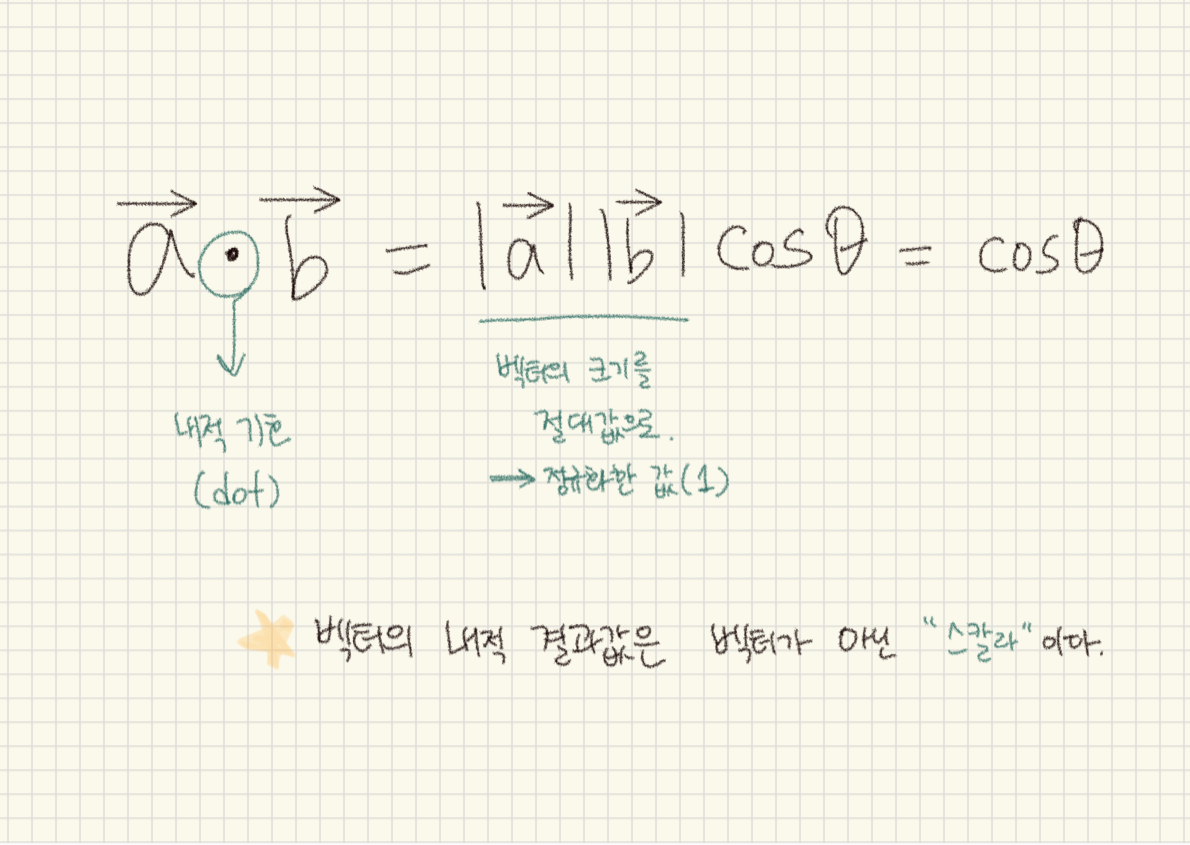 a⃗ • b⃗ = |a⃗||b⃗| cosθ = cosθ
벡터의 크기를
절대값으로.
→ 정규화한 값(1)
내적 기호
(dot)
벡터의 내적 결과값은 벡터가 아닌 “스칼라” 이다.